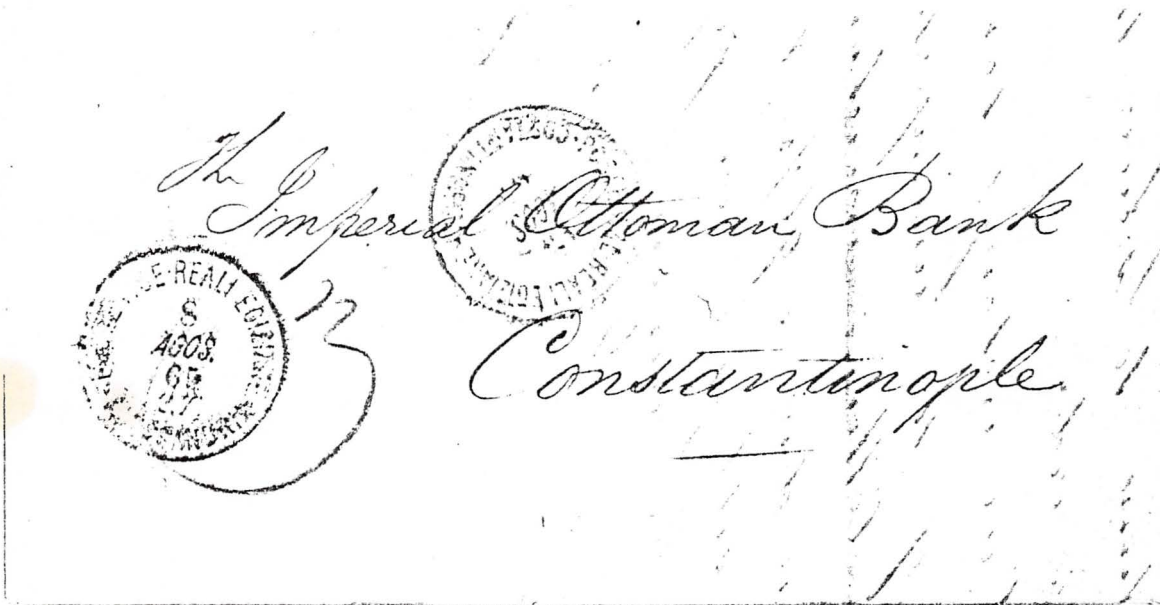 The
Imperial Ottoman Bank
Constantinople
POSTE VICE-REALI EGIZIANE
8
AGOS.
65
ALESSANDRIA
REALI EGIZIANE